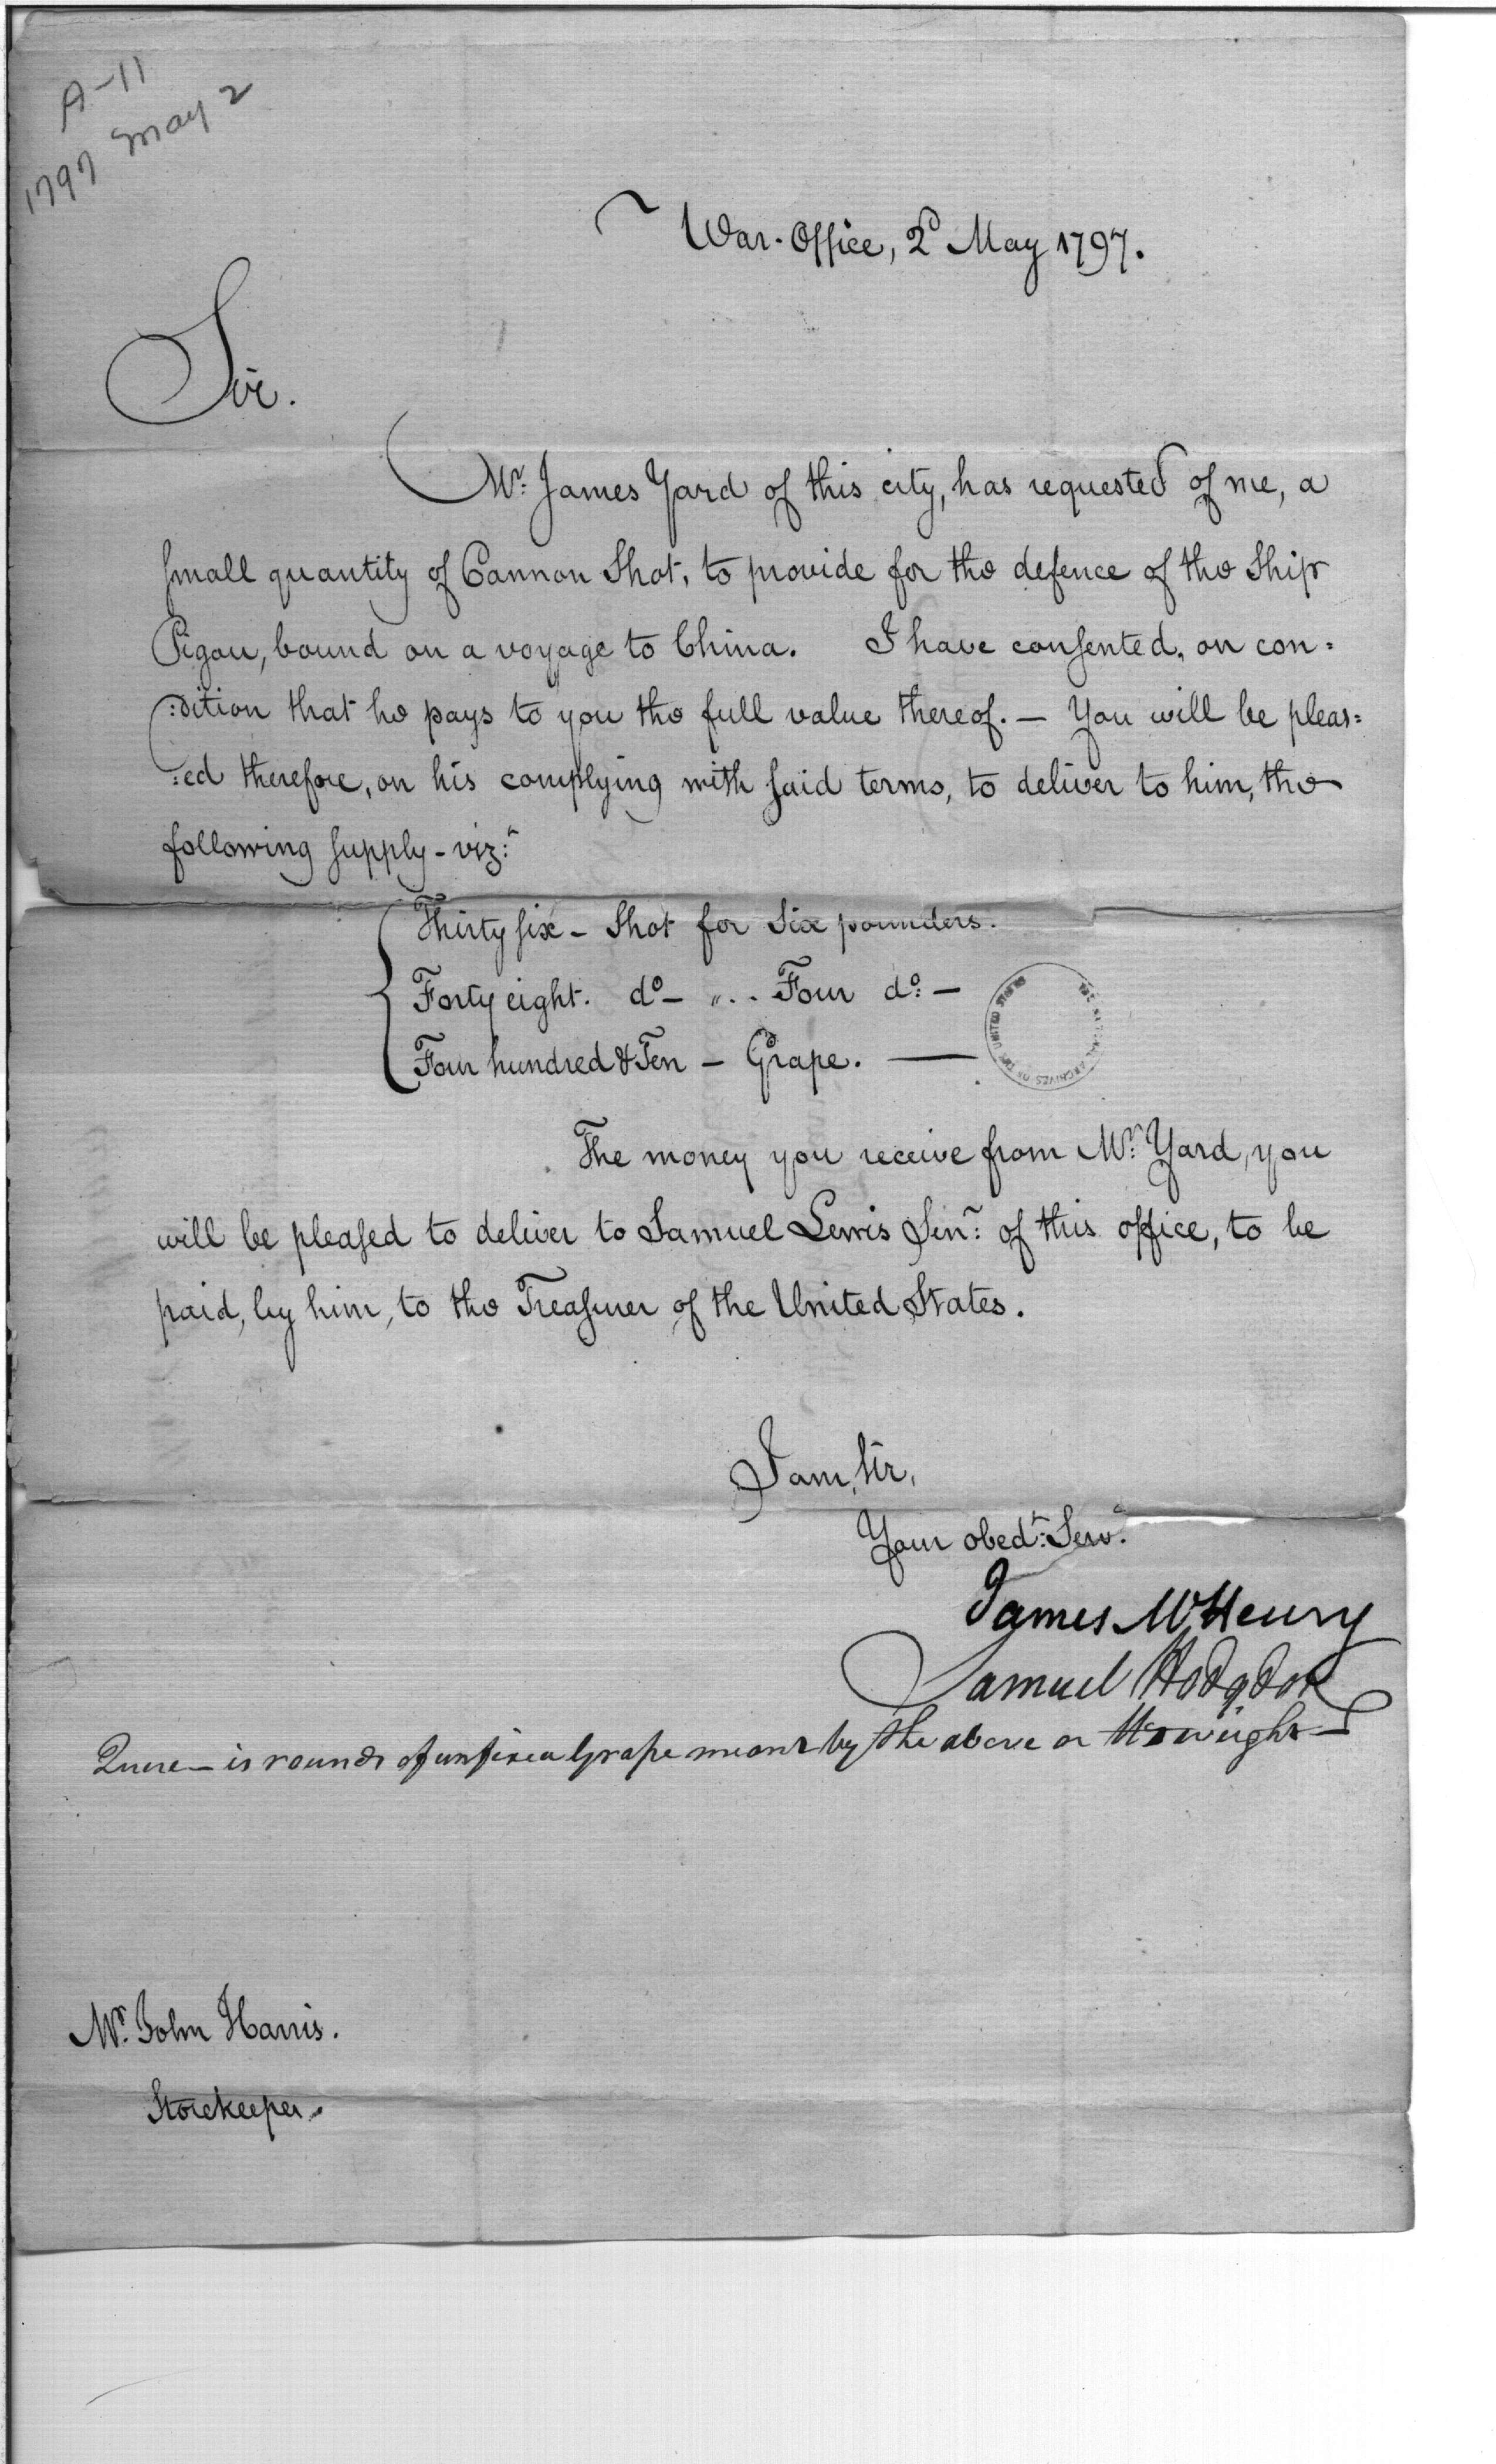 A-11
1797 May 2
War-Office, 2d May 1797.
Sir.
Mr: James Yard of this city, has requested of me, a
small quantity of Cannon Shot, to provide for the defence of the Ship
Pigou, bound on a voyage to China. I have consented, on con=
:dition that he pays to you the full value thereof. — You will be pleas=
:ed therefore, on his complying with said terms, to deliver to him, the
following supply - viz:t
Thirty six - Shot for Six pounders.
Forty eight. do - „ .. Four do: —
Four hundred & Ten - Grape. —
THE NATIONAL ARCHIVES OF THE UNITED STATES
The money you receive from Mr: Yard, you
will be pleased to deliver to Samuel Lewis Senr: of this office, to be
paid, by him, to the Treasurer of the United States.
I am, Sir,
Your obedt: Servt
James McHenry
Samuel Hodgdon
Quere — is rounds of unfixed Grape meant by the above or weight —
Mr. John Harris.
Storekeeper.